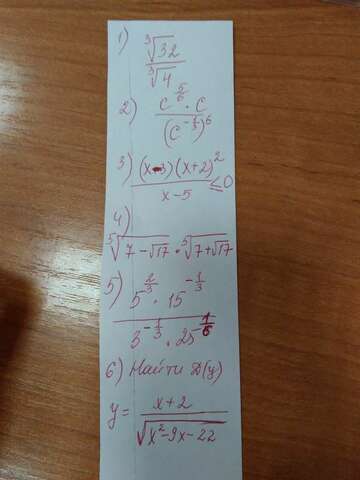 1) ∛32 / ∛4
2) c^(5/6) · c / (c^(-1/3))^6
3) (x-3)(x+2)² / x-5 ≤ 0
4)
⁵√(7-√17) · ⁵√(7+√17)
5) 5^(2/3) · 15^(-1/3) / 3^(-1/3) · 25^(-1/6)
6) Найти D(y)
y = x+2 / √(x²-9x-22)